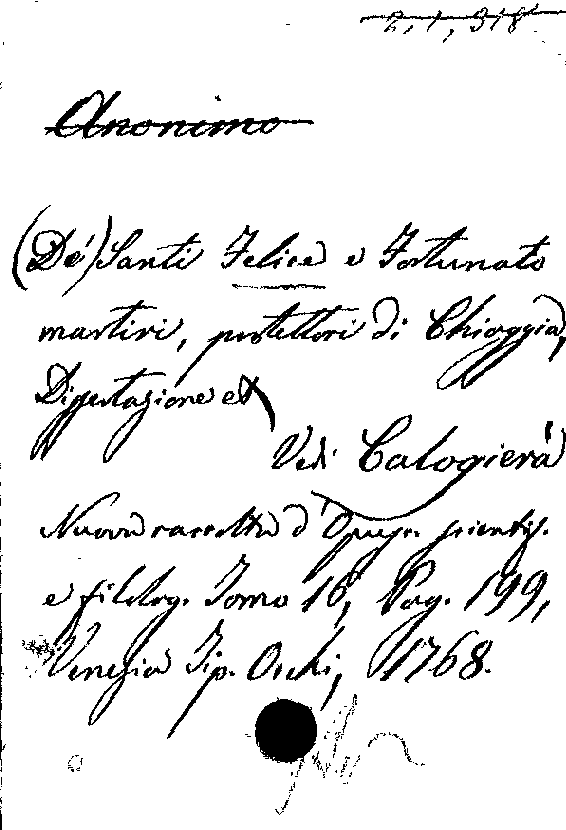 2, 1, 318
Anonimo
(De') Santi Felice e Fortunato
martiri, protettori di Chioggia,
Dissertazione et
Vedi Calogierà
Nuova raccolta d'Opusc. scientif.
e filolog. Tomo 16, Pag. 199,
Venezia Tip. Occhi, 1768.